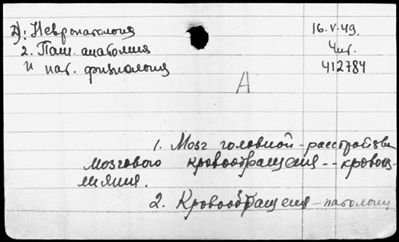 1): Невропатология
2. Пат. анатомия
и пат. физиология
16.V.49.
Чит.
412784
А
1. Мозг головной - расстройства
мозгового кровообращения -- кровоиз-
лияния.
2. Кровообращения - патология